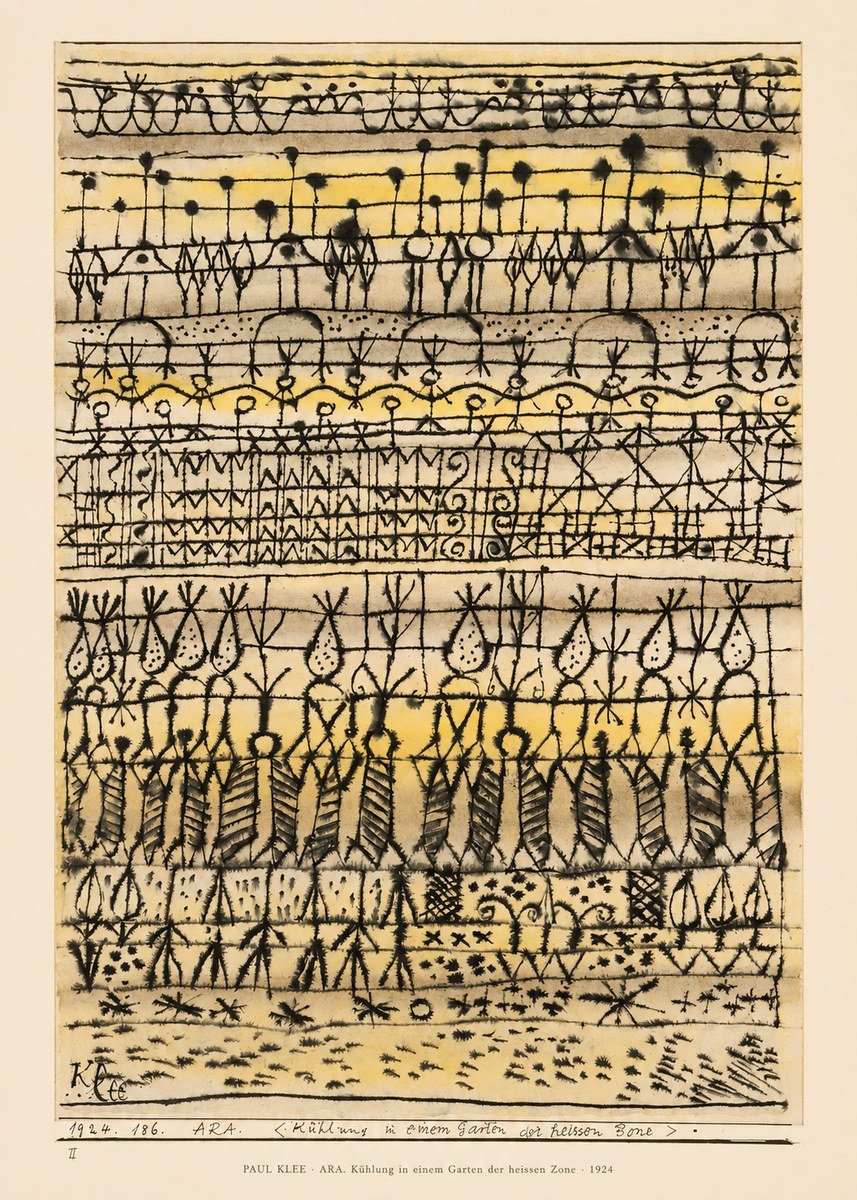 Klee
1924. 186. ARA. <Kühlung in einem Garten der heissen Zone> .
II
PAUL KLEE · ARA. Kühlung in einem Garten der heissen Zone · 1924